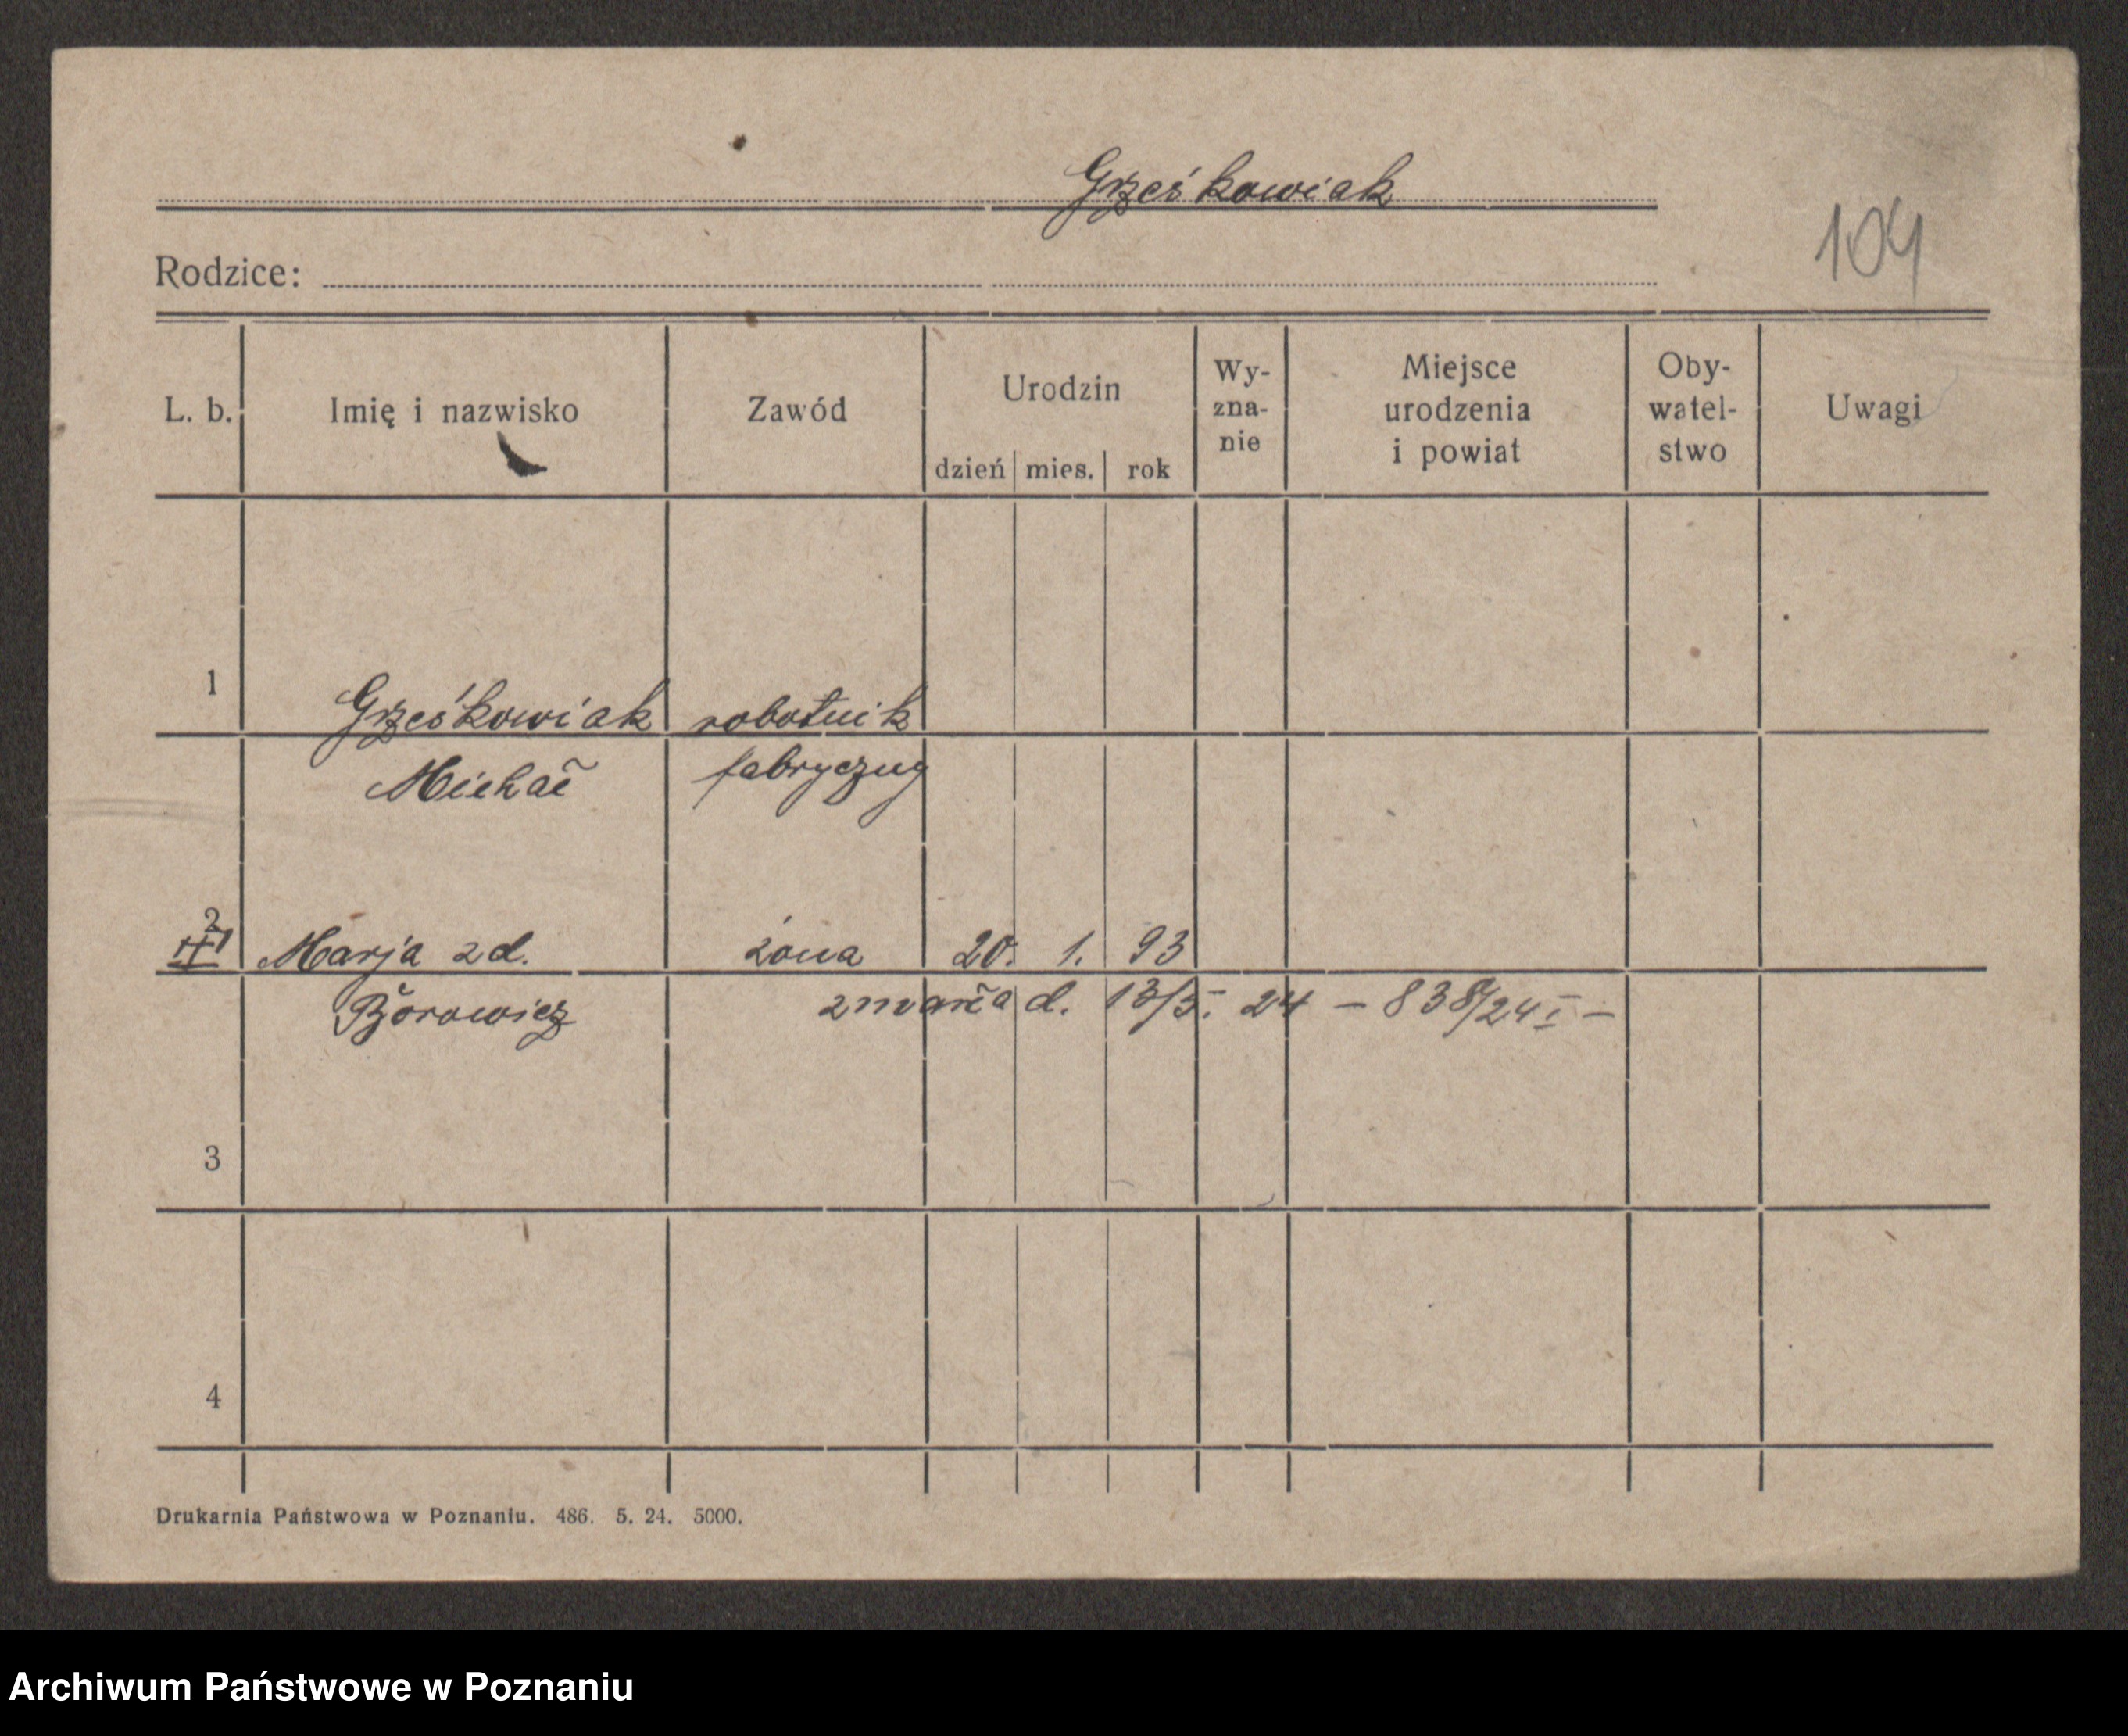 Grześkowiak
104
Rodzice:
L. b. Imię i nazwisko Zawód Urodzin dzień mies. rok Wy-zna-nie Miejsce urodzenia i powiat Oby-watel-stwo Uwagi
1 Grześkowiak robotnik
Michał fabryczny
2
Marja z d. żona 20. 1. 93
Borowicz zmarła d. 13/5. 24 – 838/24 I –
3
4
Drukarnia Państwowa w Poznaniu. 486. 5. 24. 5000.
Archiwum Państwowe w Poznaniu